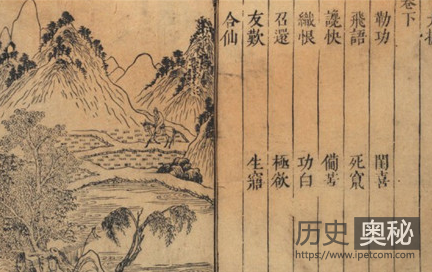 卷下
勒功 閨喜
飛語 死竄
讒快 備苦
織恨 功白
召還 極欲
友歎 生寤
合仙
历史奥秘
https://www.ipetcom.com